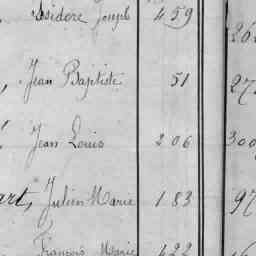 Isidore Joseph 459
262
Jean Baptiste 51
Jean Louis 206 300
art, Julien Marie 183 97
François Marie 422